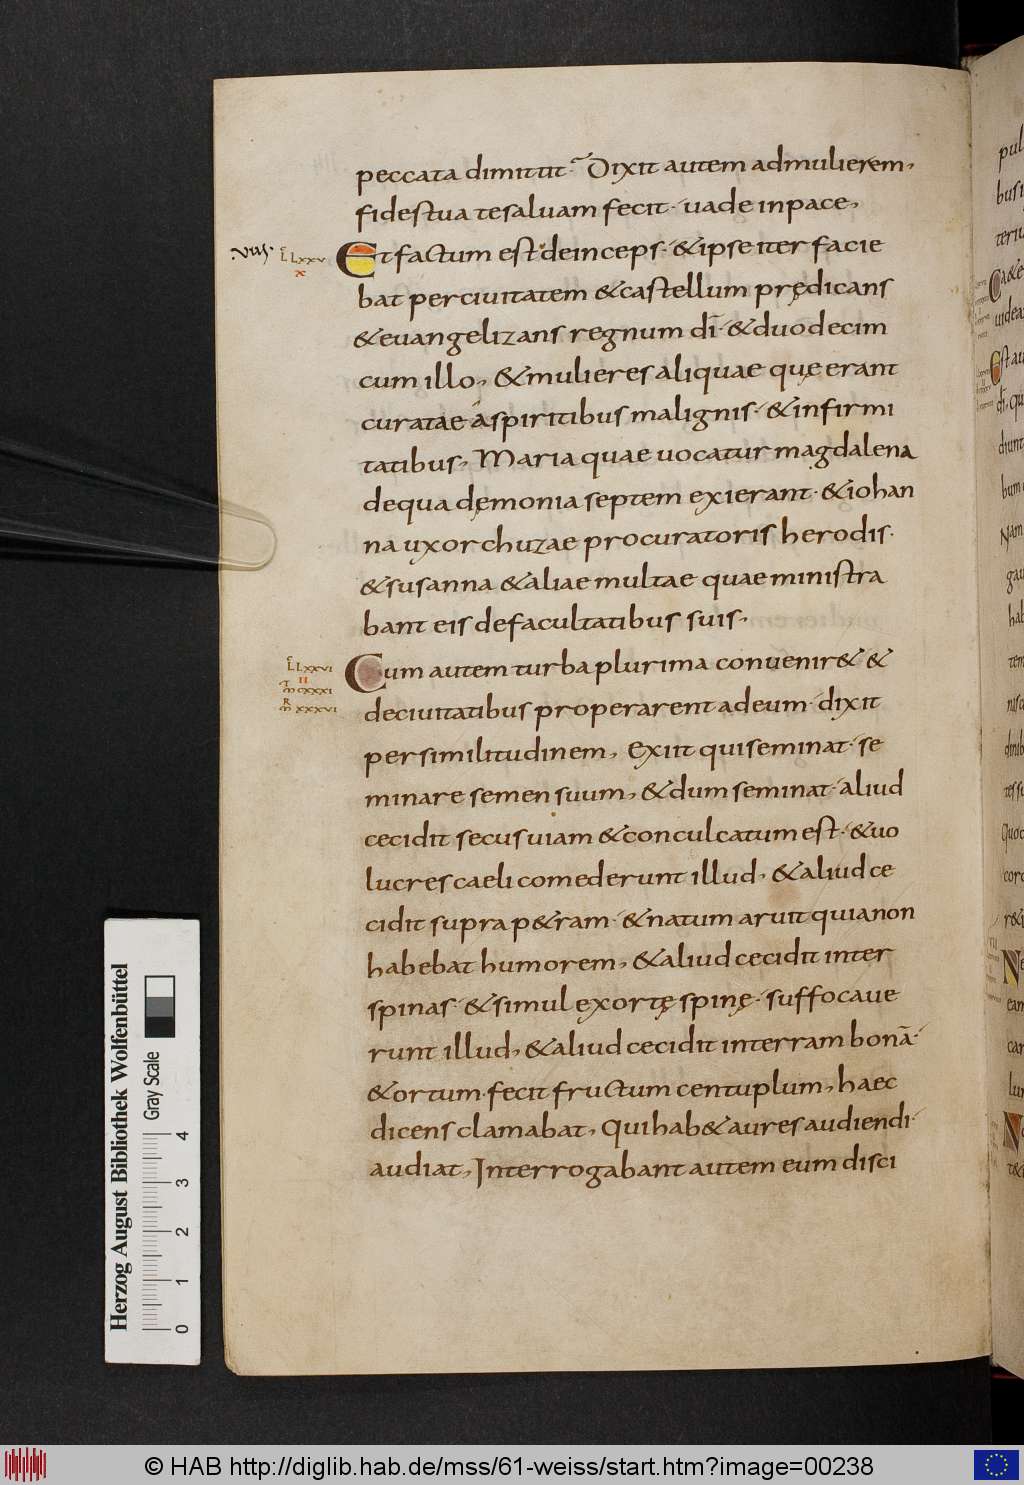 peccata dimittit· Dixit autem admulierem,
fidestua tesaluam fecit· uade inpace,
Et factum est deinceps· &ipse iter facie
bat perciuitatem &castellum prędicans
&euangelizans regnum dī· &duodecim
cum illo, &mulieres aliquae quę erant
curatae aspiritibus malignis· &infirmi
tatibus, Maria quae uocatur magdalena
dequa dęmonia septem exierant· &iohan
na uxor chuzae procuratoris herodis·
&susanna &aliae multae quae ministra
bant eis defacultatibus suis,
L LXXV
X
Cum autem turba plurima conuenir& &
deciuitatibus properarent adeum· dixit
persimilitudinem, Exiit quiseminat· se
minare semen suum, &dum seminat· aliud
cecidit secus uiam &conculcatum est· &uo
lucres caeli comederunt illud, &aliud ce
cidit supra p&ram· &natum aruit quianon
habebat humorem, &aliud cecidit inter
spinas· &simul exortę spinę· suffocaue
runt illud, &aliud cecidit interram bonā·
&ortum· fecit fructum centuplum, haec
dicens clamabat, Quihab& aures audiendi·
audiat, Interrogabant autem eum disci
L LXXVI
II
M CXXXI
M XXXVI
Herzog August Bibliothek Wolfenbüttel
Gray Scale
0 1 2 3 4
© HAB http://diglib.hab.de/mss/61-weiss/start.htm?image=00238